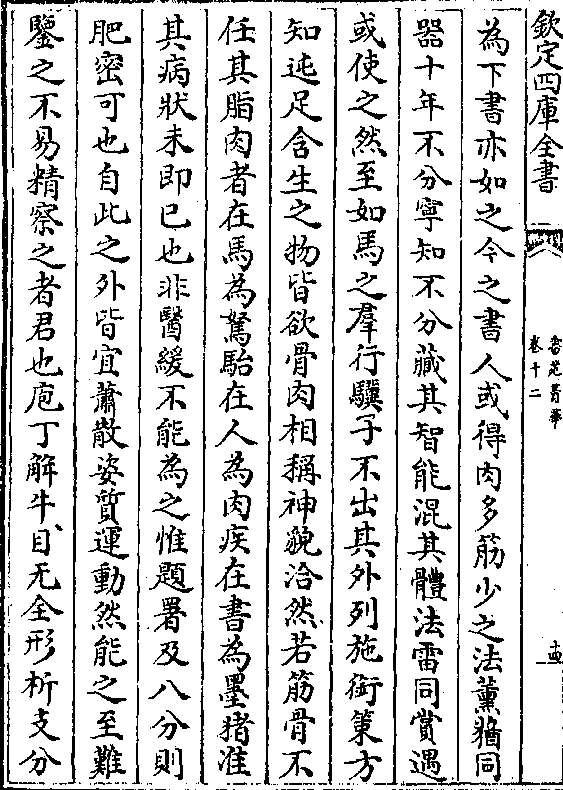 欽定四庫全書
書苑菁華
卷十二
十四
為下書亦如之今之書人或得肉多筋少之法薰蕕同
器十年不分寧知不分藏其智能混其體法雷同賞遇
或使之然至如馬之羣行驥子不出其外列施銜策方
知逸足含生之物皆欲骨肉相稱神貌洽然若筋骨不
任其脂肉者在馬為駑駘在人為肉疾在書為墨猪准
其病狀未即已也非醫緩不能為之惟題署及八分則
肥密可也自此之外皆宜蕭散姿質運動然能之至難
鑒之不易精察之者君也庖丁解牛目无全形析支分